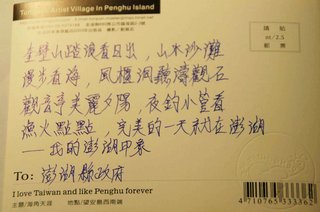 Artist Village In Penghu Island
請貼
nt/2.5
郵票
奎壁山踏浪看日出，山水沙灘
漫步看海，風櫃洞聽濤觀石
觀音亭美麗夕陽，夜釣小管看
漁火點點，完美的一天就在澎湖
——我的澎湖印象
To: 澎湖縣政府
I love Taiwan and like Penghu forever
主題/海角天涯 地點/望安島西南端
4710765333362